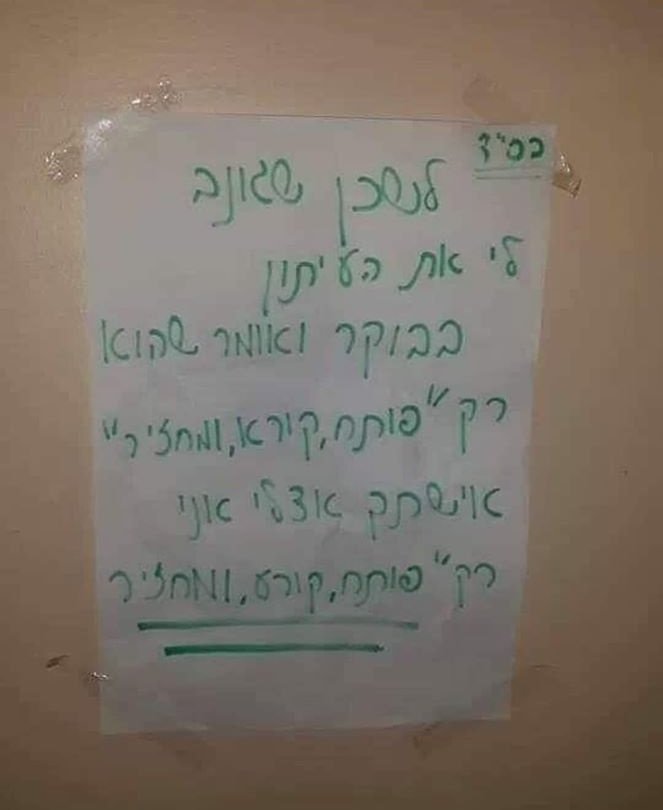 בס"ד
לשכן שגונב
לי את העיתון
בבוקר ואומר שהוא
רק "פותח, קורא, ומחזיר"
אישתק אצלי אני
רק "פותח, קורע, ומחזיר